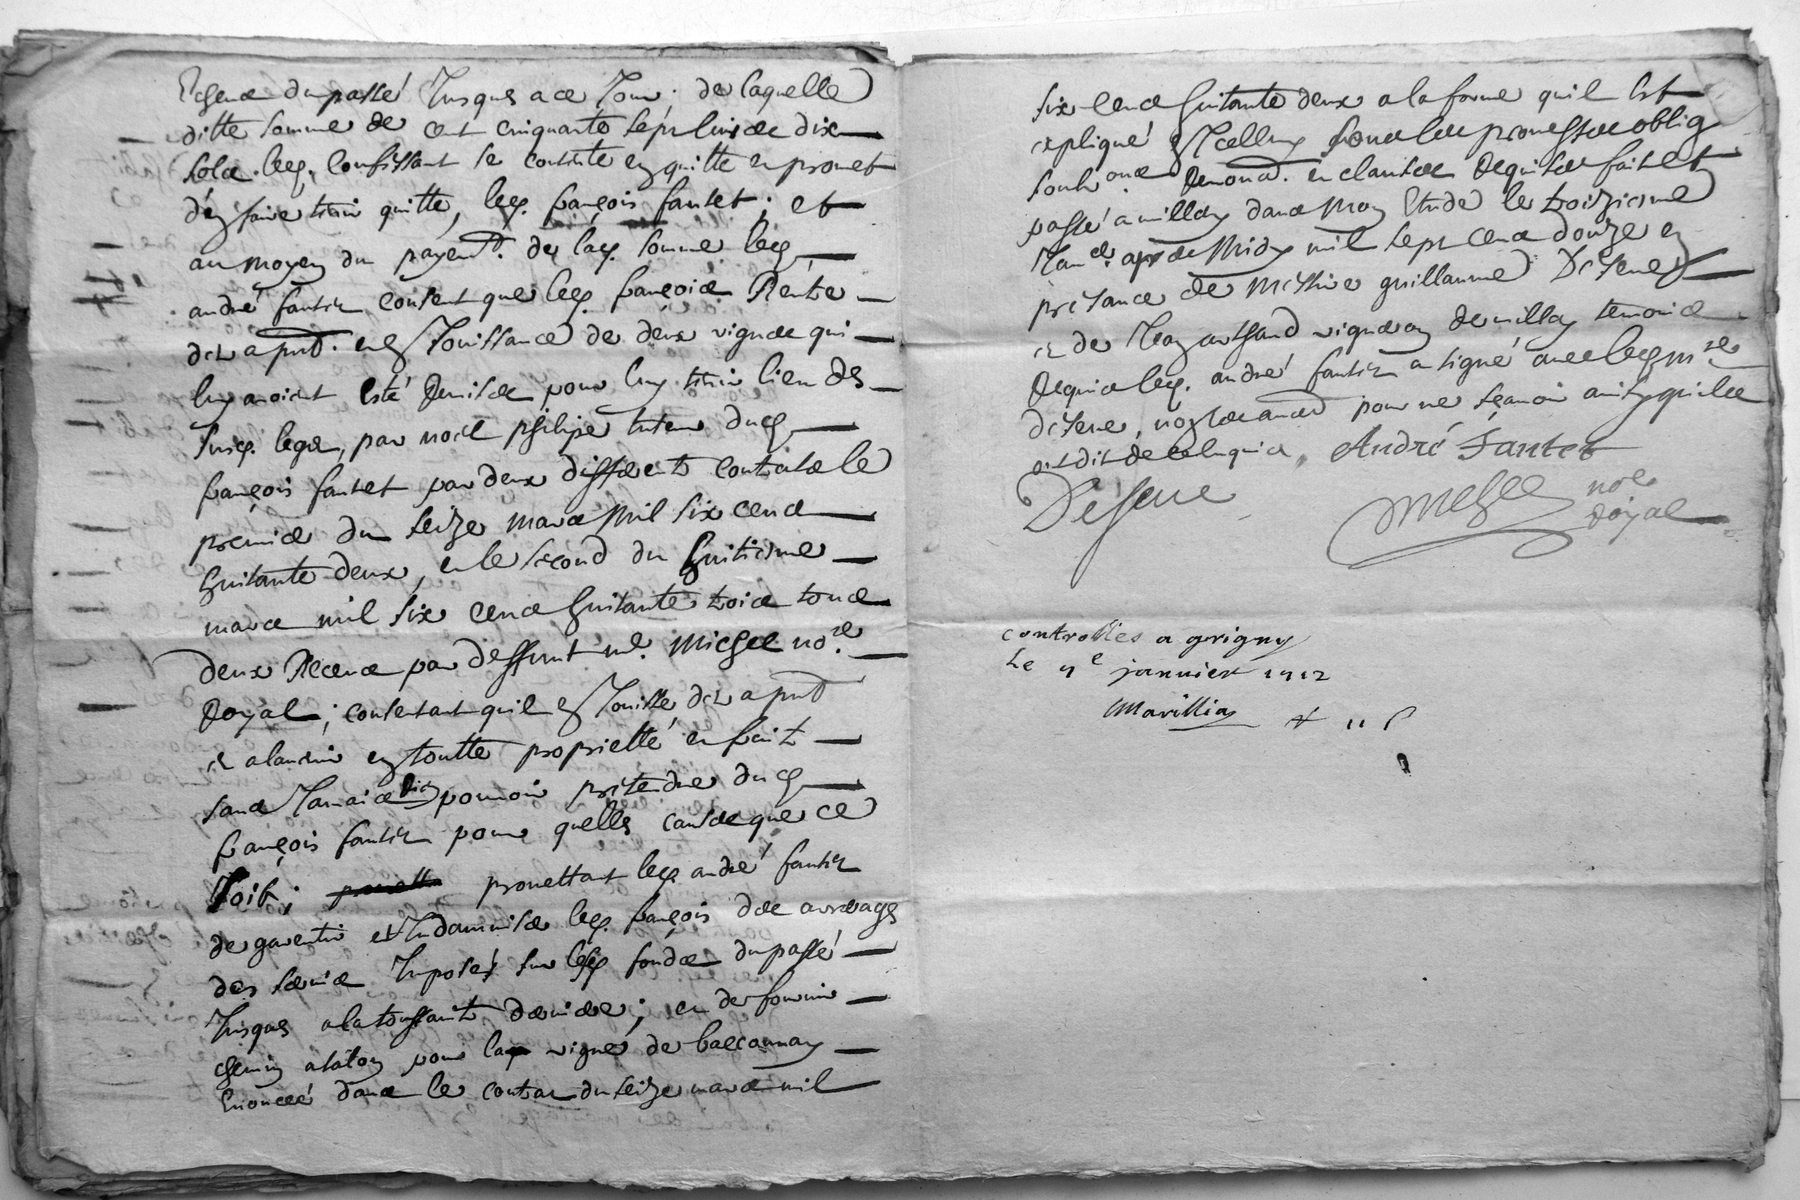 du passé Jusques a ce Jour ; de laquelle
ditte somme de cent cinquante sept livres dix
sols led. Confissant se contente en quitte en promet
d'en faire tenir quitte, led. françois fantet ; et
au moyen du payemt. de lad. somme led.
andré fantet consent que led. françois Rentre
dez a pnt. en Jouissance de deux vignes qui
luy avoient esté Remises pour luy tenir lieu des
susd. legs, par noel philipe tuteur dud.
françois fantet par deux differents contrats le
premier du seize mars Mil six cens
huitante deux, en le second du huitieme
mars mil six cens huitante trois tous
deux Receus par deffunt me. Michel nore.
Royal ; consentant quil en Jouisse dez a pnt
et a ladvenir en toutte proprietté en fait
sans Jamais Rien pouvoir pretendre dud.
françois fantet pour quelles causes que ce
soit ; promettant led. andré fantet
de garentir et Indamniser led. françois des arrerages
des servis Imposés sur lesd. fonds du passé
Jusques a la toussaint derniere ; en de fournir
chemin a talon pour lad. vigne de
Enoncée dans le contrat du seize mars mil
six cens huitante deux a la forme quil Est
expliqué En Icelluy promesses oblig
Renond. en clauses Requises fait et
passé a millery dans Moy Etude le troizieme
Janer. apres Midy mil sept cens douze en
presance de Messire guillaume Deserre
et de vigneron de millery temoins
Requis led. andré fantet a signé avec led. mre
Deserre, non pour ne sçavoir ainsy quil
ont dit de ce Enquis. André Fantet
Deserre Michel nore
Royal
controllés a grigny
Le 7e janvier 1712
Marillia